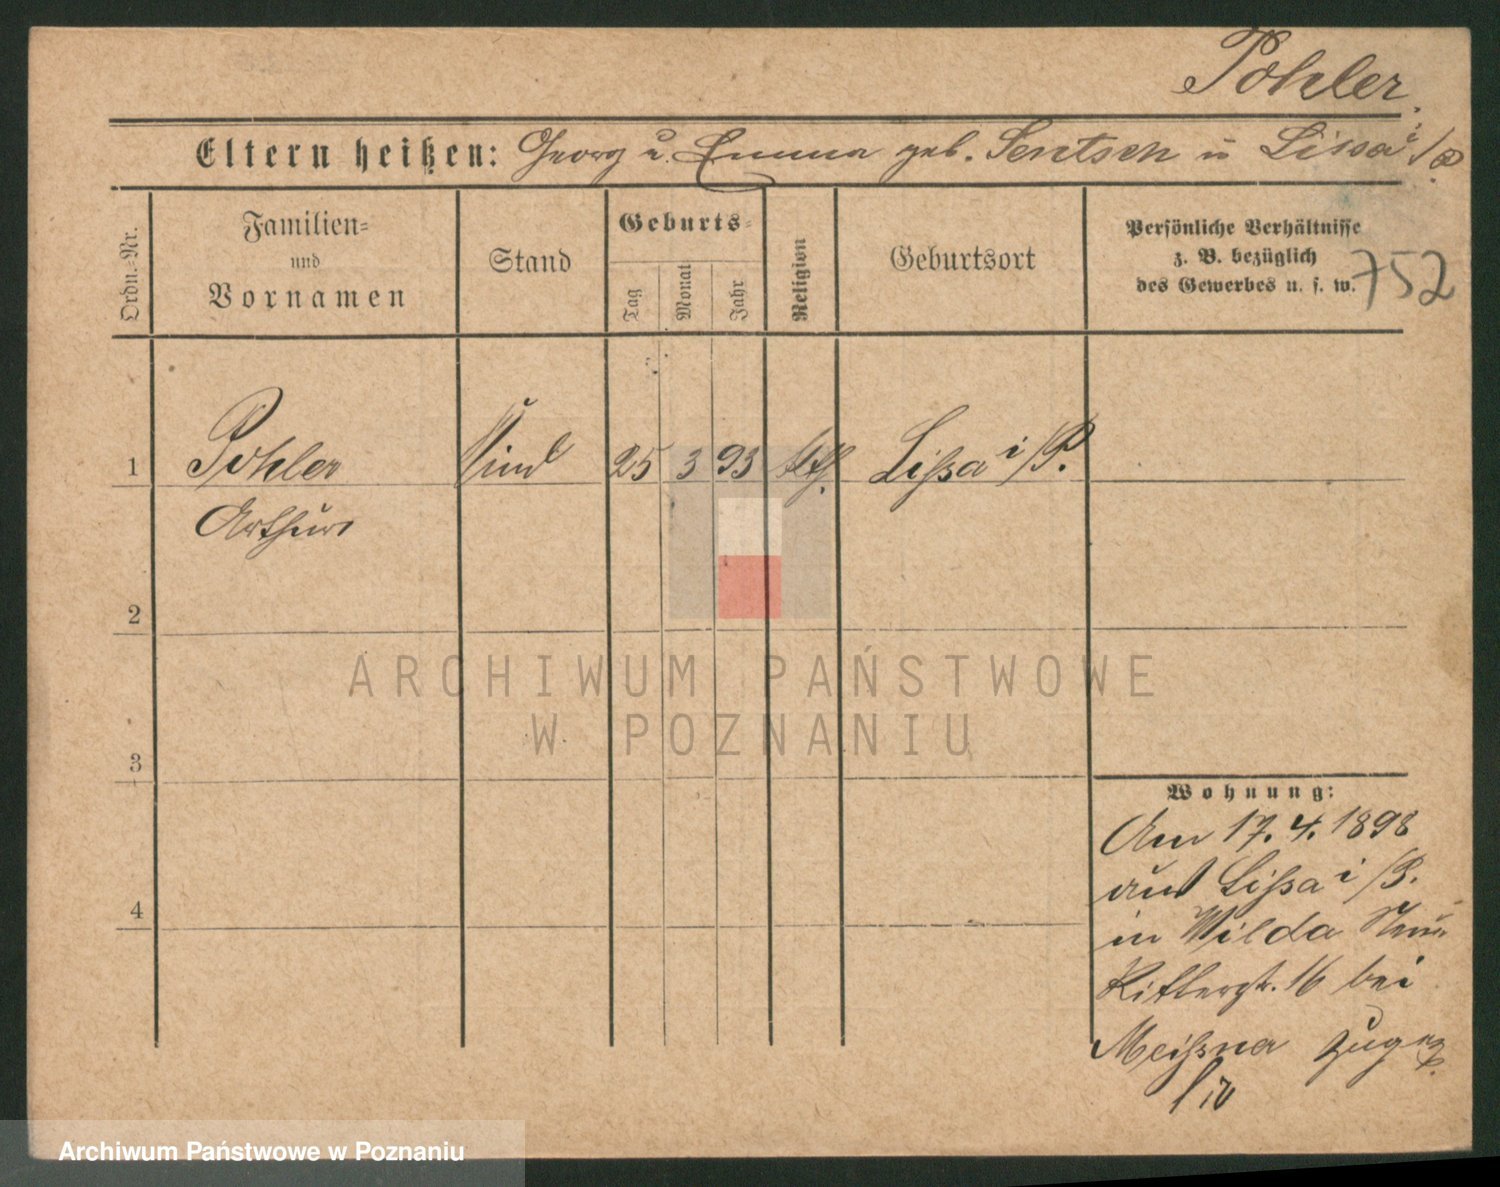 Pohler
Eltern heißen: Georg u. Emma geb. Sentsch in Lissa i/P.
Ordn.-Nr.
Familien-
und
Vornamen
Stand
Geburts-
Tag
Monat
Jahr
Religion
Geburtsort
Persönliche Verhältnisse
z. B. bezüglich
des Gewerbes u. s. w.
752
1 Pohler Kind 25 3 93 kth. Lißsa i/P.
Arthur
2
ARCHIWUM PAŃSTWOWE
W POZNANIU
3
Wohnung:
Am 17. 4. 1898
aus Lißsa i/P.
4
in Wilda
Ritterstr. 16 bei
Meißner zugez.
Archiwum Państwowe w Poznaniu